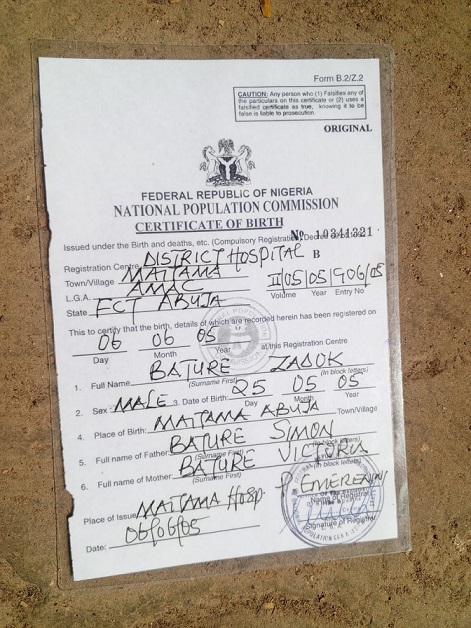 Form B.2/Z.2
CAUTION: Any person who (1) Falsifies any of
the particulars on this certificate or (2) uses a
falsified certificate as true, knowing it to be
false is liable to prosecution.
ORIGINAL
FEDERAL REPUBLIC OF NIGERIA
NATIONAL POPULATION COMMISSION
CERTIFICATE OF BIRTH
Issued under the Birth and deaths, etc. (Compulsory Registration) Decree No 10341321
Registration Centre DISTRICT HOSPITAL B
Town/Village MAITAMA
L.G.A. AMAC II/05/05/906/05
State FCT ABUJA Volume Year Entry No
This to certify that the birth, details of which are recorded herein has been registered on
06 06 05 at this Registration Centre
Day Month Year
1. Full Name: BATURE ZADOK
(Surname First) (In block letters)
2. Sex: MALE 3. Date of Birth: 25 05 05
Day Month Year
4. Place of Birth: MAITAMA ABUJA Town/Village
5. Full name of Father BATURE SIMON
(Surname First) (In block letters)
6. Full name of Mother: BATURE VICTORIA
(Surname First) (In block letters)
Place of Issue MAITAMA HOSP.
Name of Registrar
Date: 06/06/05
Signature of Registrar